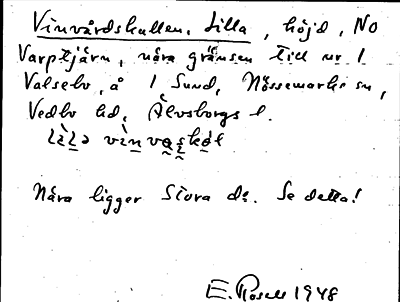 Vinvårdskullen, Lilla, höjd, NO
Varptjärn, nära gränsen till nr 1
Valselv, å i Sund, Nössemarks sn,
Vedbo hd, Älvsborgs l.
Nära ligger Stora do. Se detta!
E. Rosell 1948